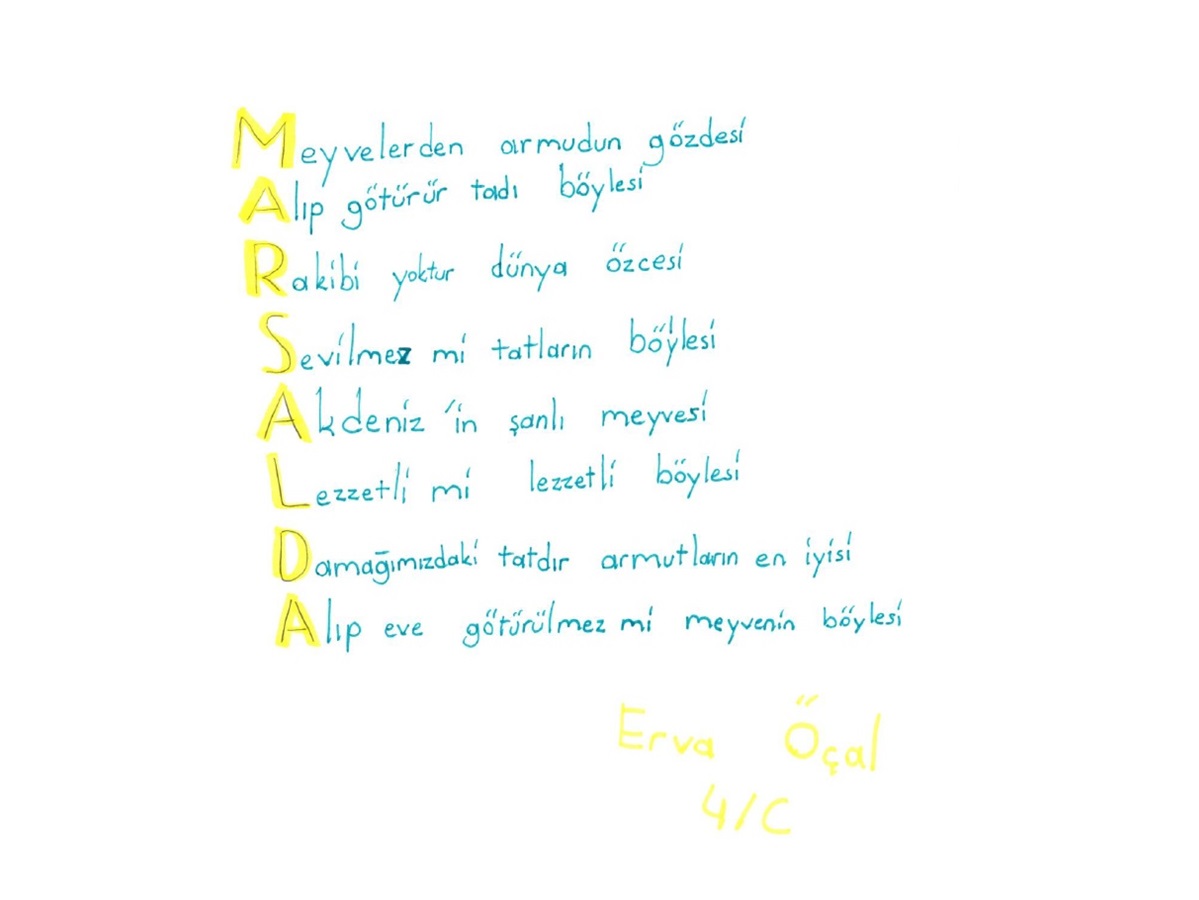 Meyvelerden armudun gözdesi
Alıp götürür tadı böylesi
Rakibi yoktur dünya özcesi
Sevilmez mi tatların böylesi
Akdeniz'in şanlı meyvesi
Lezzetli mi lezzetli böylesi
Damağımızdaki tatdır armutların en iyisi
Alıp eve götürülmez mi meyvenin böylesi
Erva Öçal
4/C